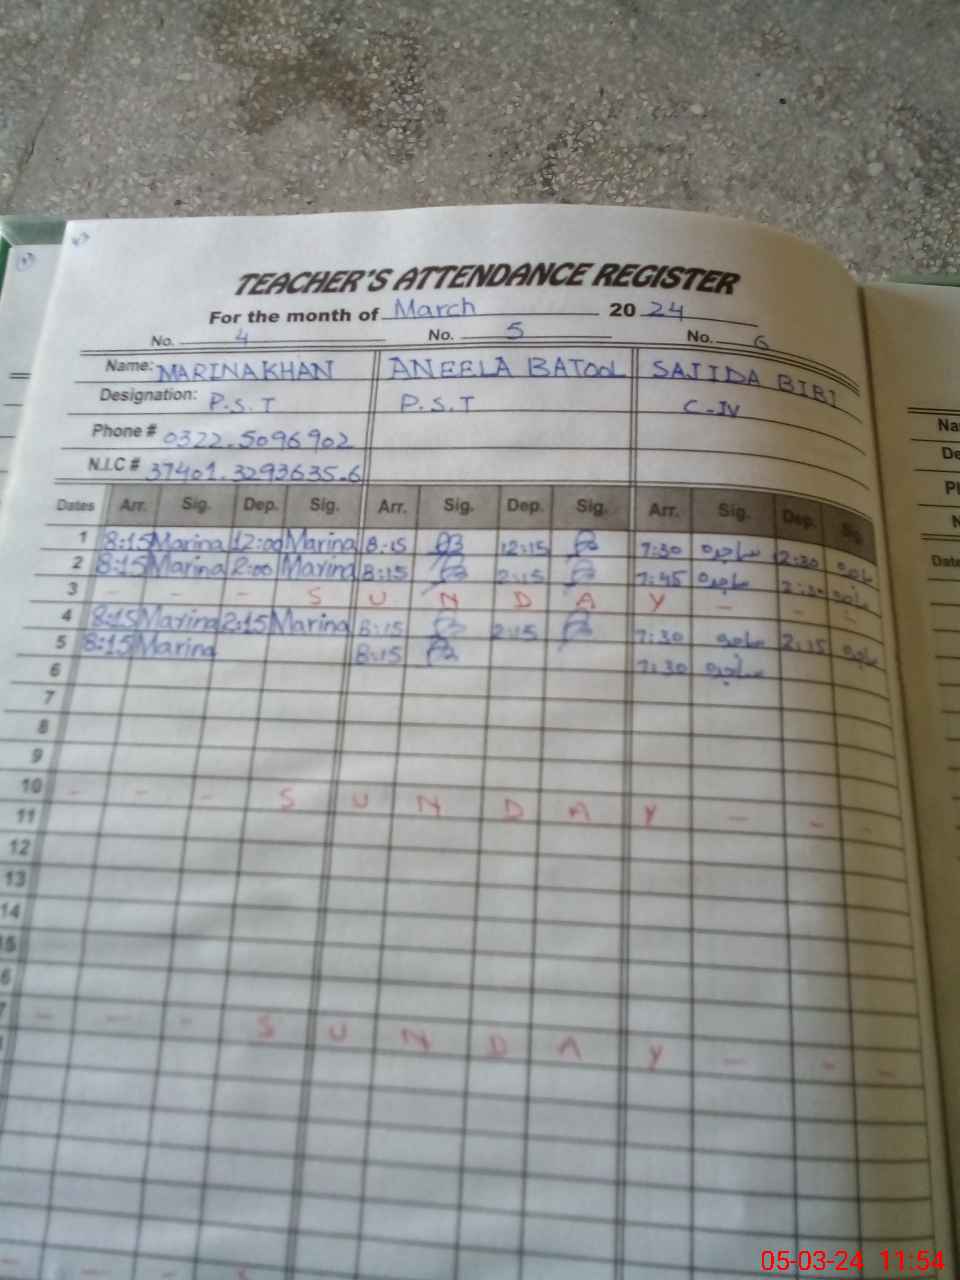 TEACHER'S ATTENDANCE REGISTER
For the month of March 20 24
No. 4 No. 5 No. 6
Name: MARINA KHAN ANEELA BATOOL SAJIDA BIBI
Designation: P.S.T P.S.T C-IV
Phone # 0322.5096902
N.I.C # 37401.3293635.6
Dates Arr. Sig. Dep. Sig. Arr. Sig. Dep. Sig. Arr. Sig. Dep. Sig.
1 8:15 Marina 12:00 Marina 8:15 12:15 7:30 ساجدہ 12:30 ساجدہ
2 8:15 Marina 2:00 Marina 8:15 2:15 7:45 ساجدہ 2:30 ساجدہ
3 - - - S U N D A Y - - -
4 8:15 Marina 2:15 Marina 8:15 2:15 7:30 ساجدہ 2:15 ساجدہ
5 8:15 Marina 8:15 7:30 ساجدہ
6
7
8
9
10 - - - S U N D A Y - - -
11
12
13
14
15
6
7 - - - S U N D A Y - - -
Na
De
Ph
N
Date
05-03-24 11:54